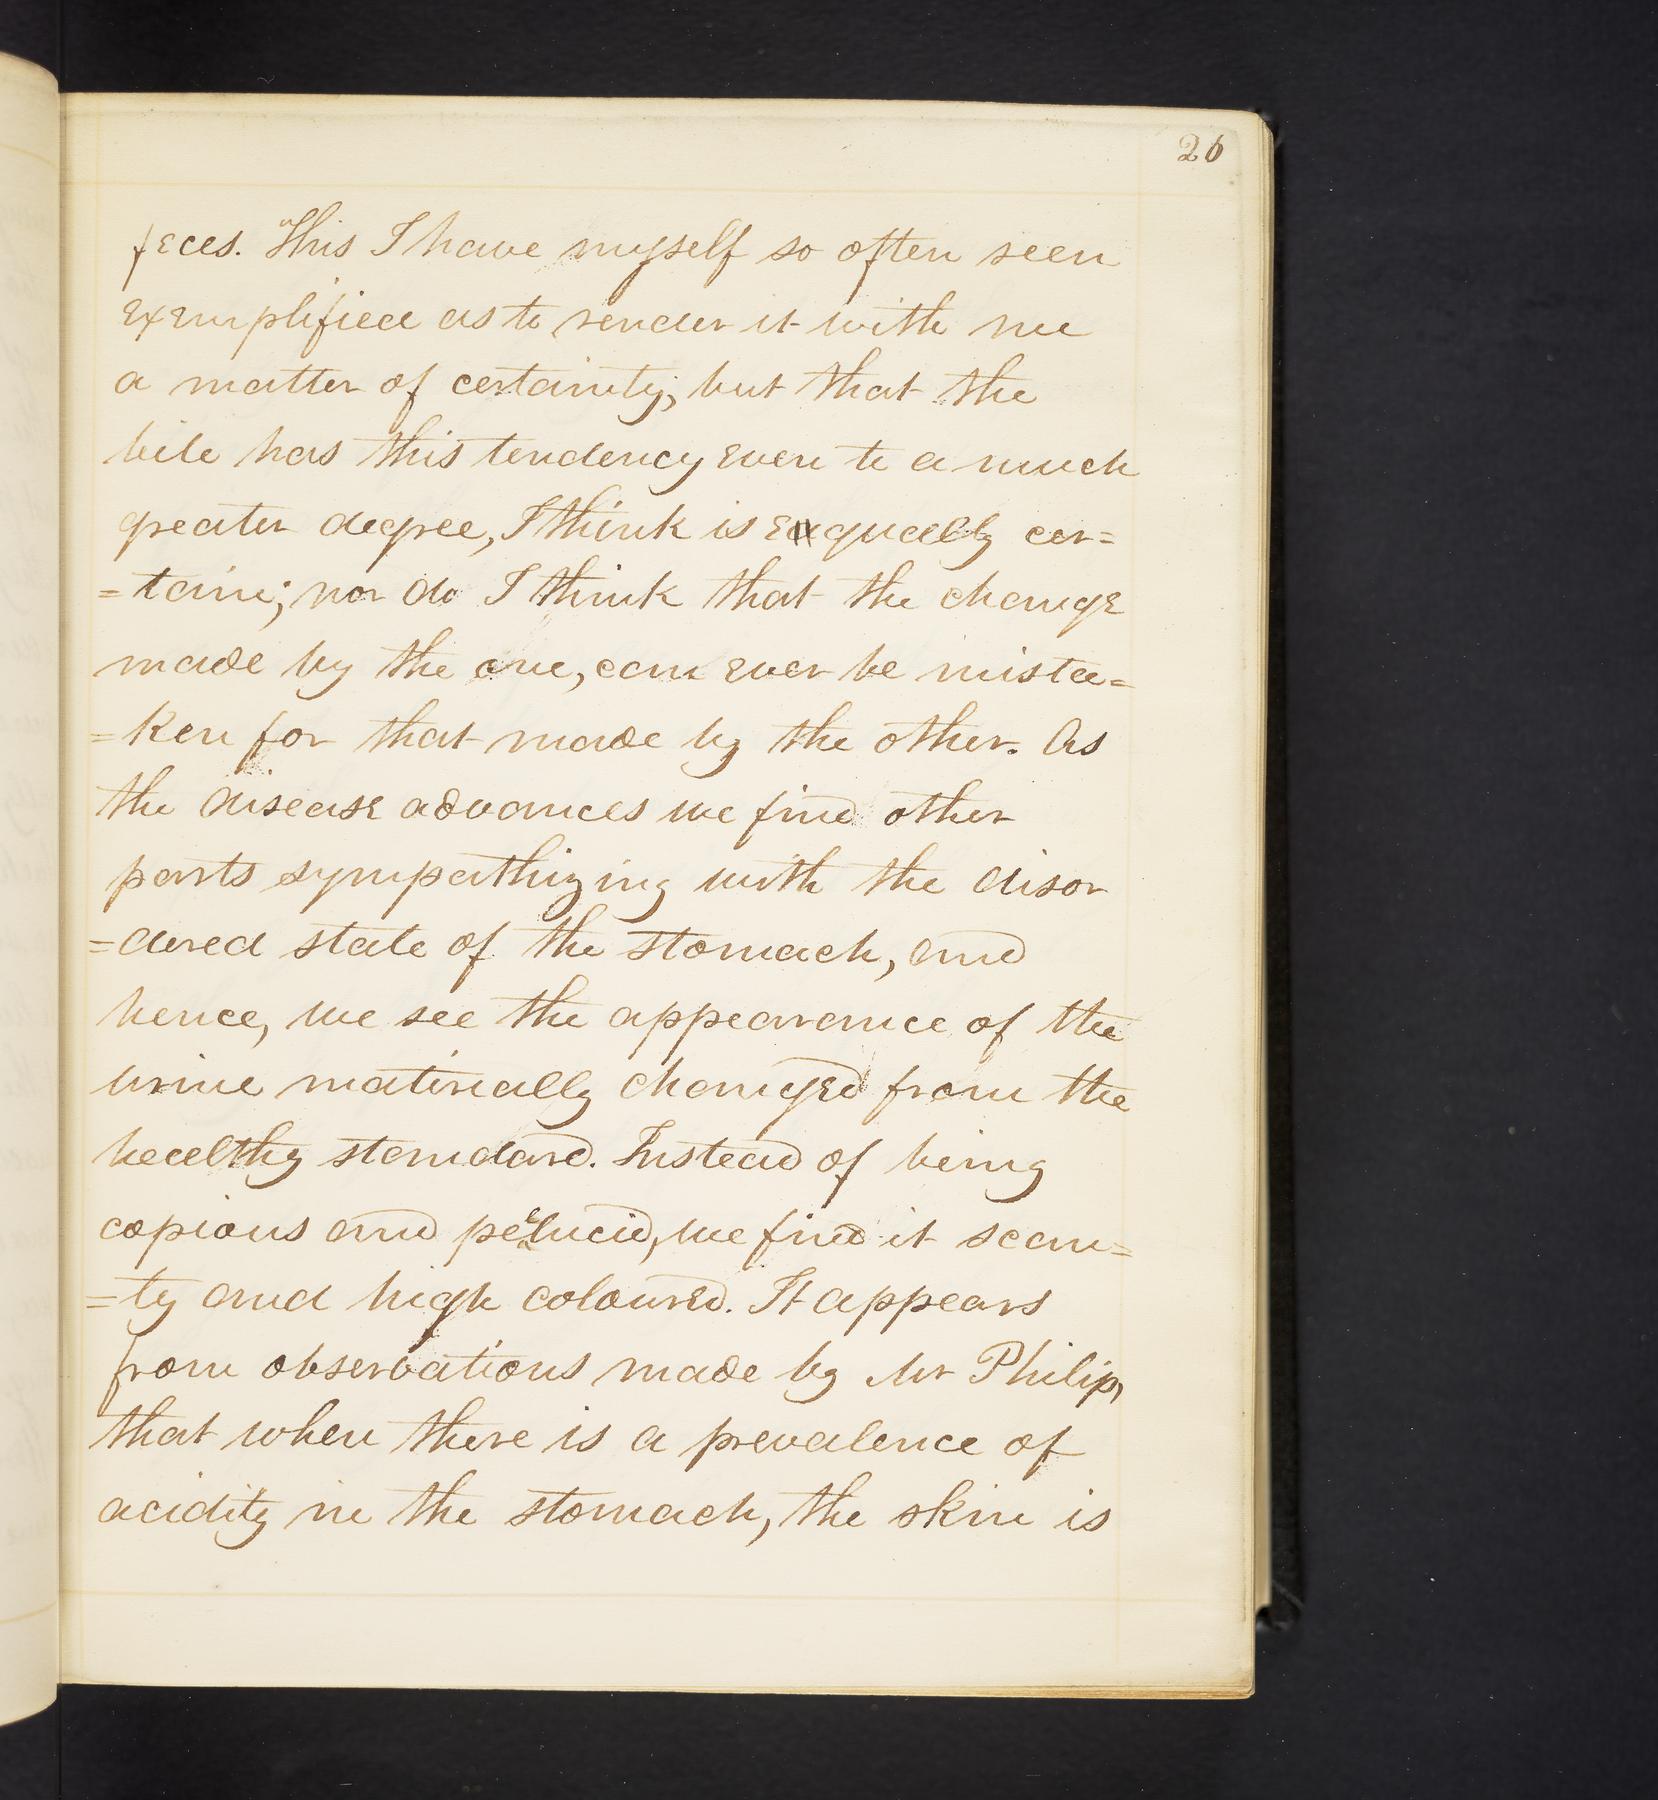 26
feces. "This I have myself so often seen
exemplified as to render it with me
a matter of certainty, but that the
bile has this tendency even to a much
greater degree, I think is eaqually cer=
=tain; nor do I think that the change
made by the one, can ever be mista=
=ken for that made by the other. As
the disease advances we find other
parts sympathizing with the disor
=dered state of the stomach, and
hence, we see the appearance of the
urine matirially changed from the
healthy standard. Instead of being
copious and pellucid, we find it scan=
=ty and high coloured. It appears
from observations made by Mr Philip,
that when there is a prevalence of
acidity in the stomach, the skin is